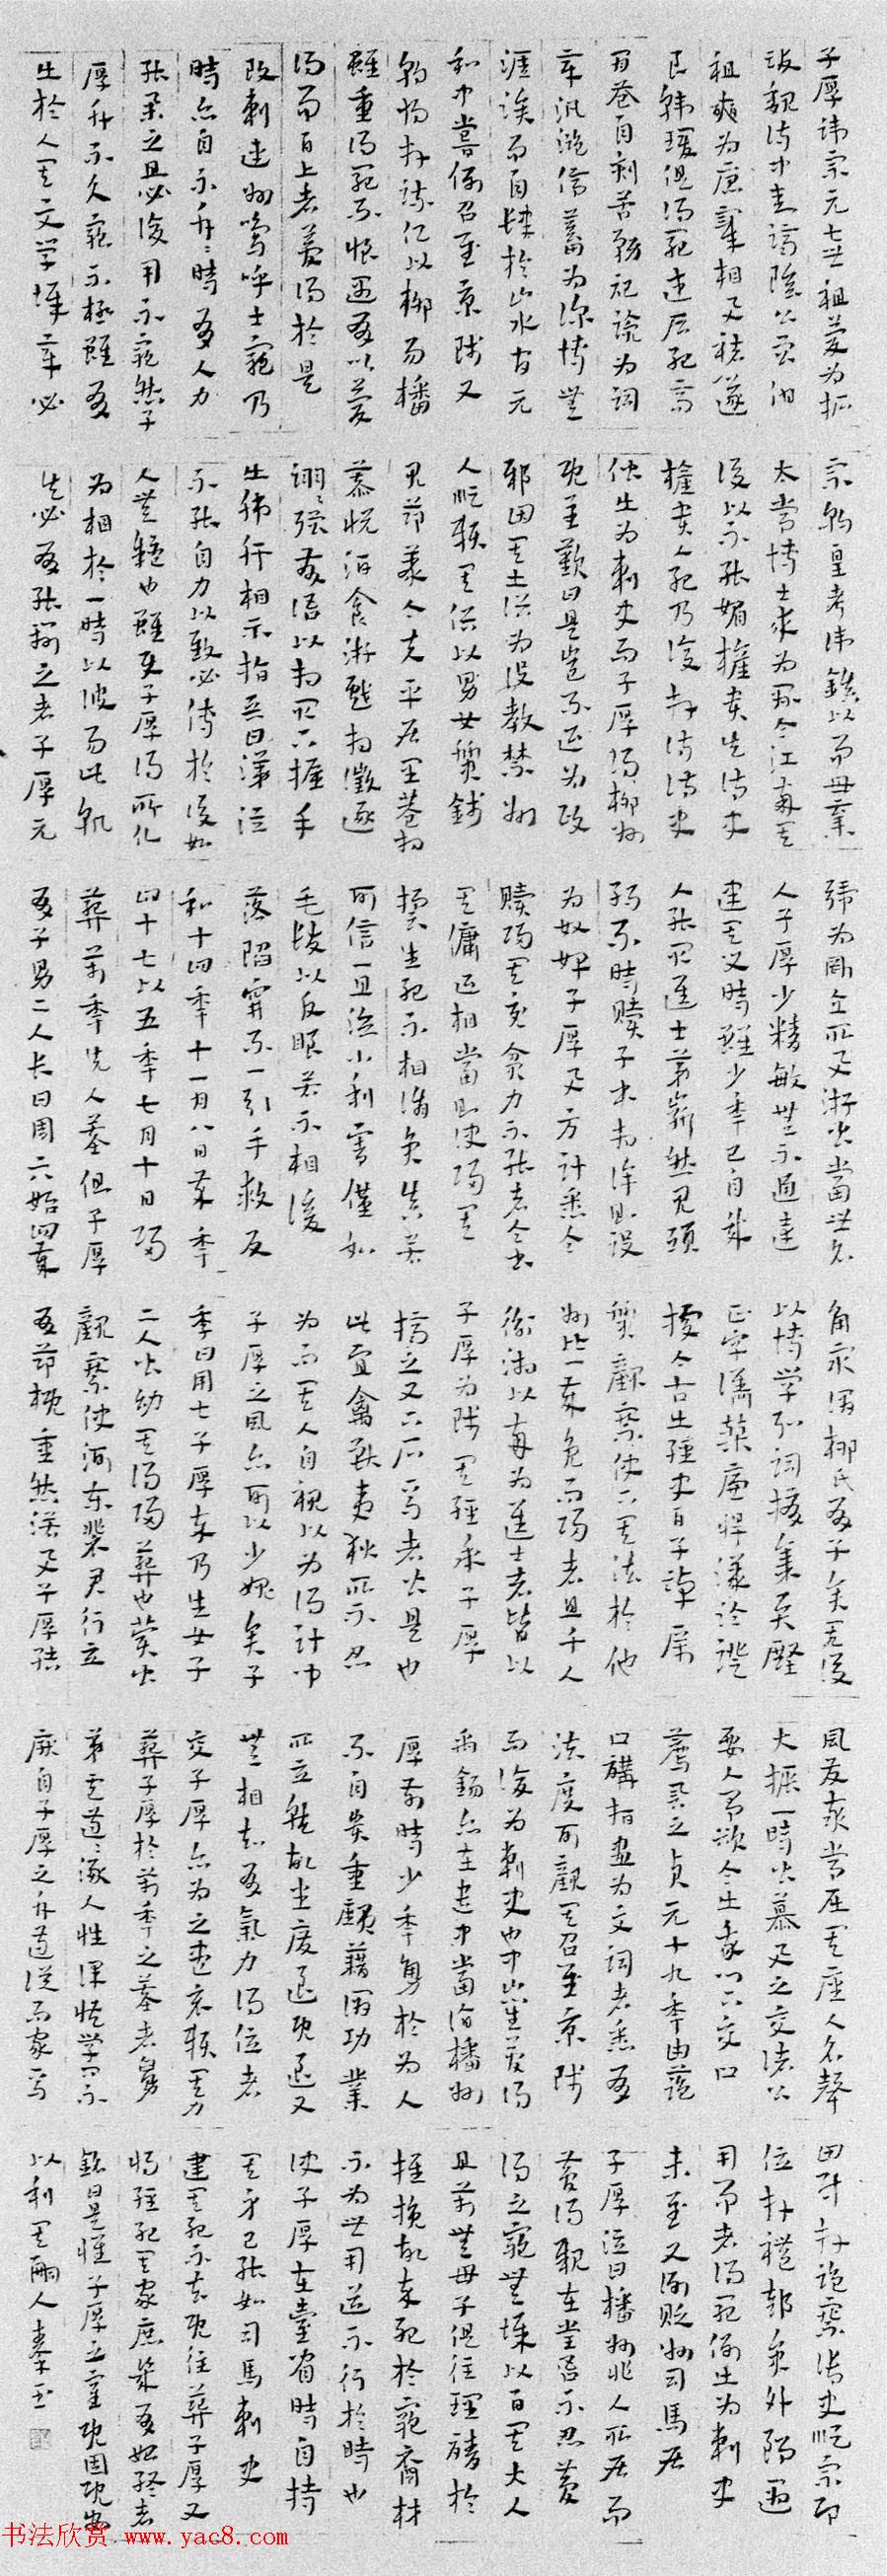 子厚諱宗元七世祖慶為拓
跋魏侍中封濟陰公曾伯
祖奭為唐宰相與褚遂
良韓瑗俱得罪武后死高
宗朝皇考諱鎮以事母棄
太常博士求為縣令江南其
後以不能媚權貴失御史
權貴人死乃復拜侍御史
號為剛直所與游皆當世名
人子厚少精敏無不通達
逮其父時雖少年已自成
人能取進士第嶄然見頭
角眾謂柳氏有子矣其後
以博學宏詞授集賢殿
正字儁傑廉悍議論證
據今古出經史百子踔厲
風發率常屈其座人名聲
大振一時皆慕與之交諸公
要人爭欲令出我門下交口
薦譽之貞元十九年由藍
田尉拜監察御史順宗即
位拜禮部員外郎遇
用事者得罪例出為刺史
未至又例貶州司馬居
閒益自刻苦務記覽為詞
章汎濫停蓄為深博無
涯涘而自肆於山水間元
和中嘗例召至京師又
偕出為刺史而子厚得柳州
既至歎曰是豈不足為政
邪因其土俗為設教禁州
人順賴其俗以男女質錢
約不時贖子本相侔則沒
為奴婢子厚與方計悉令
贖歸其尤貧力不能者令書
其傭足相當則使歸其
質觀察使下其法於他
州比一歲免而歸者且千人
衡湘以南為進士者皆以
子厚為師其經承子厚
口講指畫為文詞者悉有
法度可觀其召至京師
而復為刺史也中山劉夢得
禹錫亦在遣中當詣播州
子厚泣曰播州非人所居而
夢得親在堂吾不忍夢
得之窮無辭以白其大人
且萬無母子俱往理請於
朝將拜疏願以柳易播
雖重得罪死不恨遇有以夢
得事白上者夢得於是
改刺連州嗚呼士窮乃
見節義今夫平居里巷相
慕悅酒食游戲相徵逐
詡詡強笑語以相取下握手
出肺肝相示指天日涕泣
誓生死不相背負真若
可信一旦臨小利害僅如
毛髮比反眼若不相識
落陷穽不一引手救反
擠之又下石焉者皆是也
此宜禽獸夷狄所不忍
為而其人自視以為得計聞
子厚之風亦可以少媿矣子
厚前時少年勇於為人
不自貴重顧藉謂功業
可立就故坐廢退既退又
無相知有氣力得位者
推挽故卒死於窮裔材
不為世用道不行於時也
使子厚在臺省時自持
其身已能如司馬刺史
時亦自不斥斥時有人力
能舉之且必復用不窮然子
厚斥不久窮不極雖有
出於人其文學辭章必
不能自力以致必傳於後如
今無疑也雖使子厚得所
為將相於一時以彼易此孰
失必有能辨之者子厚元
和十四年十一月八日卒年
四十七以五年七月十日歸
葬萬年先人墓側子厚
有子男二人長曰周六始四歲
季曰周七子厚卒乃生女子
二人皆幼其得歸葬也費出
觀察使河東裴君行立
有節概重然諾與子厚結
交子厚亦為之盡竟賴其力
葬子厚於萬年之墓者舅
弟盧遵遵涿人性謹慎學問不
厭自子厚之斥遵從而家焉
逮其死不去既往葬子厚又
將經紀其家庶幾有始終者
銘曰是惟子厚之室既固既安
以利其嗣人
书法欣赏 www.yac8.com